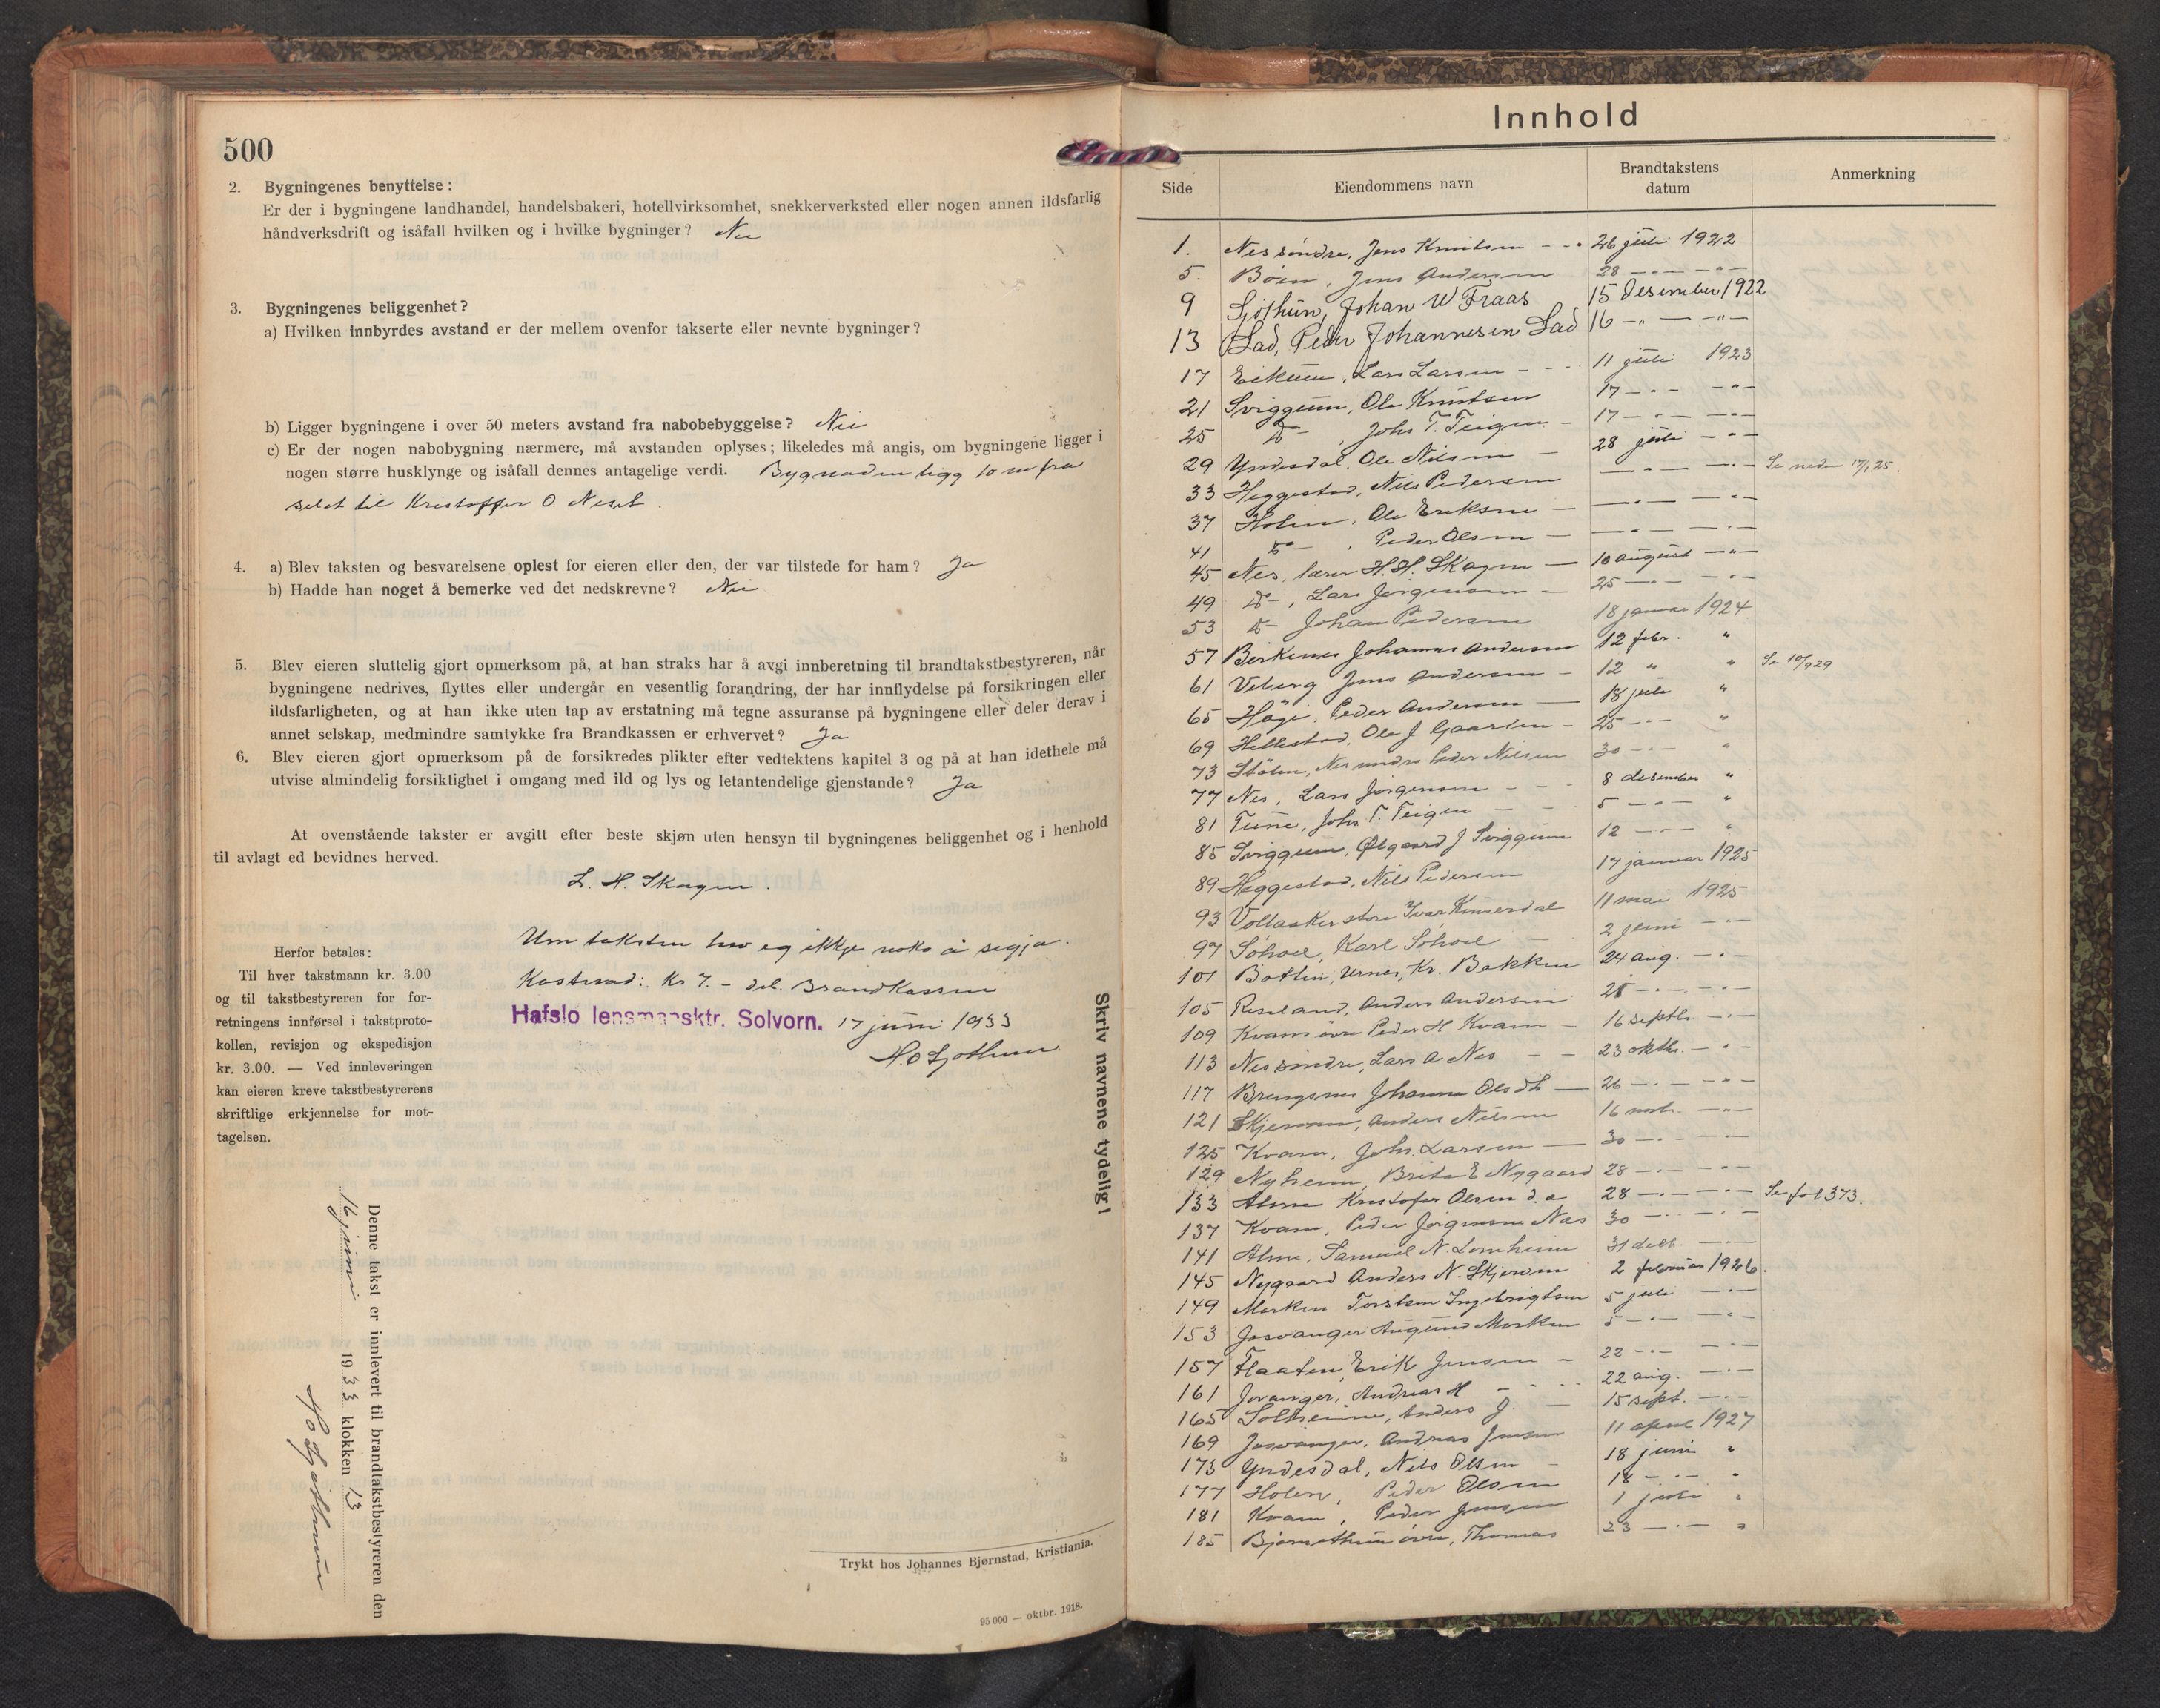 500
2. Bygningenes benyttelse:
Er der i bygningene landhandel, handelsbakeri, hotellvirksomhet, snekkerverksted eller nogen annen ildsfarlig
håndverksdrift og isåfall hvilken og i hvilke bygninger? Nei
3. Bygningenes beliggenhet?
a) Hvilken innbyrdes avstand er der mellem ovenfor takserte eller nevnte bygninger?
b) Ligger bygningene i over 50 meters avstand fra nabobebyggelse? Nei
c) Er der nogen nabobygning nærmere, må avstanden oplyses; likeledes må angis, om bygningene ligger i
nogen større husklynge og isåfall dennes antagelige verdi. Bygnaden ligg 10 m fra
selet til Kristoffer O. Neset.
4. a) Blev taksten og besvarelsene oplest for eieren eller den, der var tilstede for ham? Ja
b) Hadde han noget å bemerke ved det nedskrevne? Nei
5. Blev eieren sluttelig gjort opmerksom på, at han straks har å avgi innberetning til brandtakstbestyreren, når
bygningene nedrives, flyttes eller undergår en vesentlig forandring, der har innflydelse på forsikringen eller
ildsfarligheten, og at han ikke uten tap av erstatning må tegne assuranse på bygningene eller deler derav i
annet selskap, medmindre samtykke fra Brandkassen er erhvervet? Ja
6. Blev eieren gjort opmerksom på de forsikredes plikter efter vedtektens kapitel 3 og på at han idethele må
utvise almindelig forsiktighet i omgang med ild og lys og letantendelige gjenstande? Ja
At ovenstående takster er avgitt efter beste skjøn uten hensyn til bygningenes beliggenhet og i henhold
til avlagt ed bevidnes herved.
L. H. Skagen.
Um taksten hev eg ikkje noko å segja.
Kostnad: Kr 7. - del. Brandkassen
Hafslo lensmansktr. Solvorn. 17 juni 1933
Herfor betales:
Til hver takstmann kr. 3.00
og til takstbestyreren for for-
retningens innførsel i takstproto-
kollen, revisjon og ekspedisjon
kr. 3.00. — Ved innleveringen
kan eieren kreve takstbestyrerens
skriftlige erkjennelse for mot-
tagelsen.
Skriv navnene tydelig!
Denne takst er innlevert til brandtakstbestyreren den
16 juni 1933 klokken 13
Trykt hos Johannes Bjørnstad, Kristiania.
95 000 — oktbr. 1918.
Innhold
Side Eiendommens navn Brandtakstens datum Anmerkning
1. Nes søndre, Jens Knutsen - - 26 juli 1922
5. Bøen, Jens Andersen 28 - " - - " -
9 Sjøthun, Johan W Fraas 15 desember 1922
13 Lad, Peder Johannesen Lad 16 - " - - " -
17 Eikum, Lars Larsen - - 11 juli 1923
21 Sviggum, Ole Knutsen 17 - " - - " -
25 do - , Johs T. Teigen - 17 - " - - " -
29 Yndesdal, Ole Nilsen - 28 juli - " -
33 Heggestad, Nils Pedersen - " - - " - Se neden 17/1 25.
37 Holen, Ole Eriksen - - " - - " -
41 do - , Peder Olsen - - " - - " -
45 Nes, lærer H. H. Skagen - 10 august - " -
49 do - , Lars Jørgensen - 25 - " - - " -
53 do - Johan Pedersen 18 januar 1924
57 Birkenes Johannes Andersen 12 febr. "
61 Veberg Jens Andersen - 12 " " Se 10/9 29
65 Høgi, Peder Andersen - 18 juli "
69 Hillestad, Ole J Gaarden - 25 - " - "
73 Stølen, Nes nordre Peder Nilsen 30 - " - "
77 Nes, Lars Jørgensen - - 8 desember "
81 Tune, Johs T. Teigen - - 5 - " - "
85 Sviggum, Ølgaard J Sviggum 12 - " - "
89 Heggestad, Nils Pedersen 17 januar 1925
93 Vollaaker store Ivar Kinserdal 11 mai 1925
97 Solvoll, Karl Solvoll - 2 juni - " -
101 Botlin, Urnes, Kr. Bakken 24 aug. - " -
105 Røseland, Anders Andersen - " - - " -
109 Kvam øvre Peder H Kvam - 16 septb. - " -
113 Nes søndre, Lars A Nes - - 23 oktb. - " -
117 Brengsnes Johanna Olsdt - 26 - " - - " -
121 Skjerven, Anders Nilsen 16 novb. - " -
125 Kvam, Johs. Larsen - 30 - " - - " -
129 Nyheim, Brita E Nygaard 28 - " - - " -
133 Alme Kristofer Olsen d. e 28 - " - - " - Se fol 373.
137 Kvam, Peder Jørgensen Næs 30 - " - - " -
141 Alme, Samuel N. Lomheim 31 desb. - " -
145 Nygaard Anders N. Skjerven 2 februar 1926.
149 Morken Torstein Ingebrigtsen 5 juli - " -
153 Josvanger Augund Morken 5 - " - - " -
157 Flaaten, Erik Jensen - 22 - " - - " -
161 Jovanger, Andreas H - - 22 aug. - " -
165 Solheim, Anders J. - 15 sept. - " -
169 Josvanger, Andreas Jensen 11 april 1927
173 Yndesdal, Nils Olsen - 18 juni "
177 Holen, Peder Olsen 18 - " - "
181 Kvam, Peder Jensen 1 juli "
185 Bjørnethun øvre, Thomas 23 - " - "